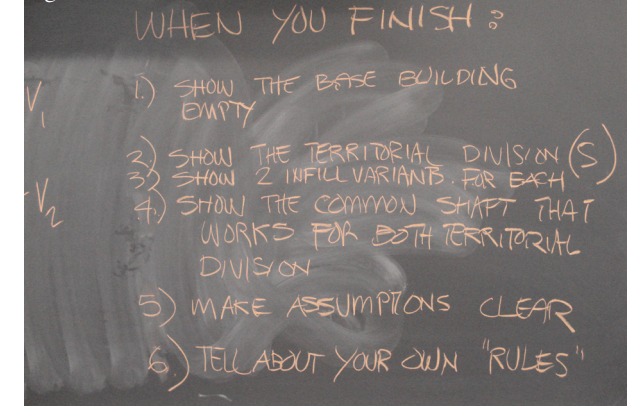 WHEN YOU FINISH:
V1
1.) SHOW THE BASE BUILDING
EMPTY
2) SHOW THE TERRITORIAL DIVISION (S)
3) SHOW 2 INFILL VARIANTS. FOR EACH
V2
4.) SHOW THE COMMON SHAFT THAT
WORKS FOR BOTH TERRITORIAL
DIVISION
5) MAKE ASSUMPTIONS CLEAR
6.) TELL ABOUT YOUR OWN "RULES"